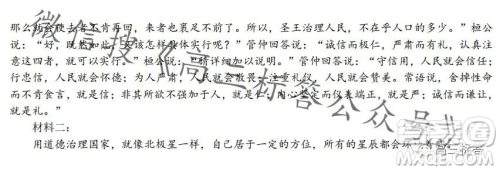 那么初来者不肯再回，来者也裹足不前了。所以，圣王治理人民，不在乎人口的多少。”桓公
说：“好，既然如此，应该怎样具体实行呢？”管仲回答说：“诚信而极仁，严肃而有礼，认真注
意这四者，就可以实行。”桓公说：“请详细加以说明。”管仲回答说：“守信用，人民就会信任；
行忠信，人民就会怀德；为人严肃，人民就会敬畏；注重礼仪，人民就会赞美。常语说，舍掉性命
而不肯食言，就是信；非其所欲不强加于人，就是仁；内心坚定而仪表端正，就是严；诚信而谦让，
就是礼。”
材料二：
用道德治理国家，就像北极星一样，自己居于一定的方位，所有的星辰都会
微信搜《高三标答公众号》
高三标答